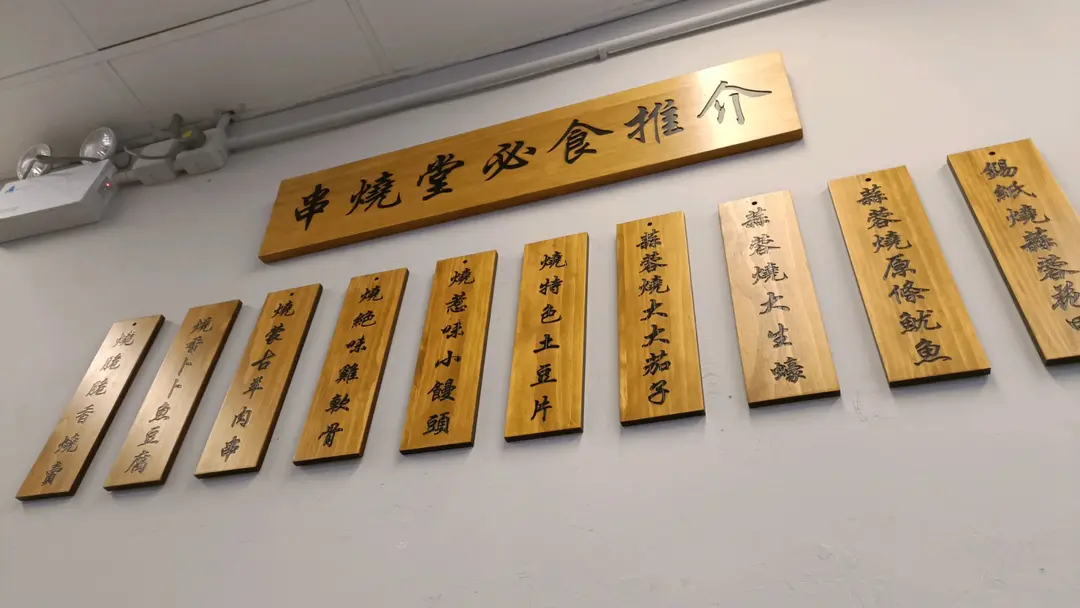 串燒堂必食推介
燒脆脆香燒賣
燒香卜卜魚豆腐
燒蒙古羊肉串
燒絕味雞軟骨
燒惹味小饅頭
燒特色土豆片
蒜蓉燒大大茄子
蒜蓉燒大生蠔
蒜蓉燒原條魷魚
錫紙燒蒜蓉